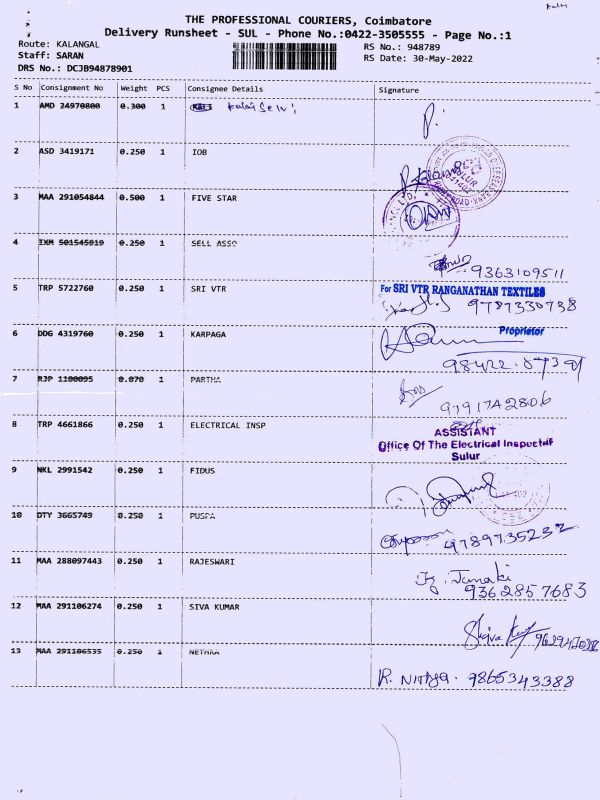 THE PROFESSIONAL COURIERS, Coimbatore
Delivery Runsheet - SUL - Phone No.:0422-3505555 - Page No.:1
Route: KALANGAL
RS No.: 948789
Staff: SARAN
RS Date: 30-May-2022
DRS No.: DCJB94878901
S No Consignment No Weight PCS Consignee Details Signature
1 AMD 24970800 0.300 1 Kalai Selvi
2 ASD 3419171 0.250 1 IOB
3 MAA 291054844 0.500 1 FIVE STAR
4 IXM 501545919 0.250 1 SELL ASSO
9363109511
5 TRP 5722760 0.250 1 SRI VTR For SRI VTR RANGANATHAN TEXTILES
9787330738
6 DDG 4319760 0.250 1 KARPAGA Proprietor
7 RJP 1100095 0.070 1 PARTHA
9791742806
8 TRP 4661866 0.250 1 ELECTRICAL INSP ASSISTANT
Office Of The Electrical Inspector
Sulur
9 NKL 2991542 0.250 1 FIDUS
10 DTY 3665749 0.250 1 PUSPA
9789735232
11 MAA 288097443 0.250 1 RAJESWARI
Janaki
9362857683
12 MAA 291106274 0.250 1 SIVA KUMAR
13 MAA 291106535 0.250 1 NETHRA
R. Nithya. 9865343388